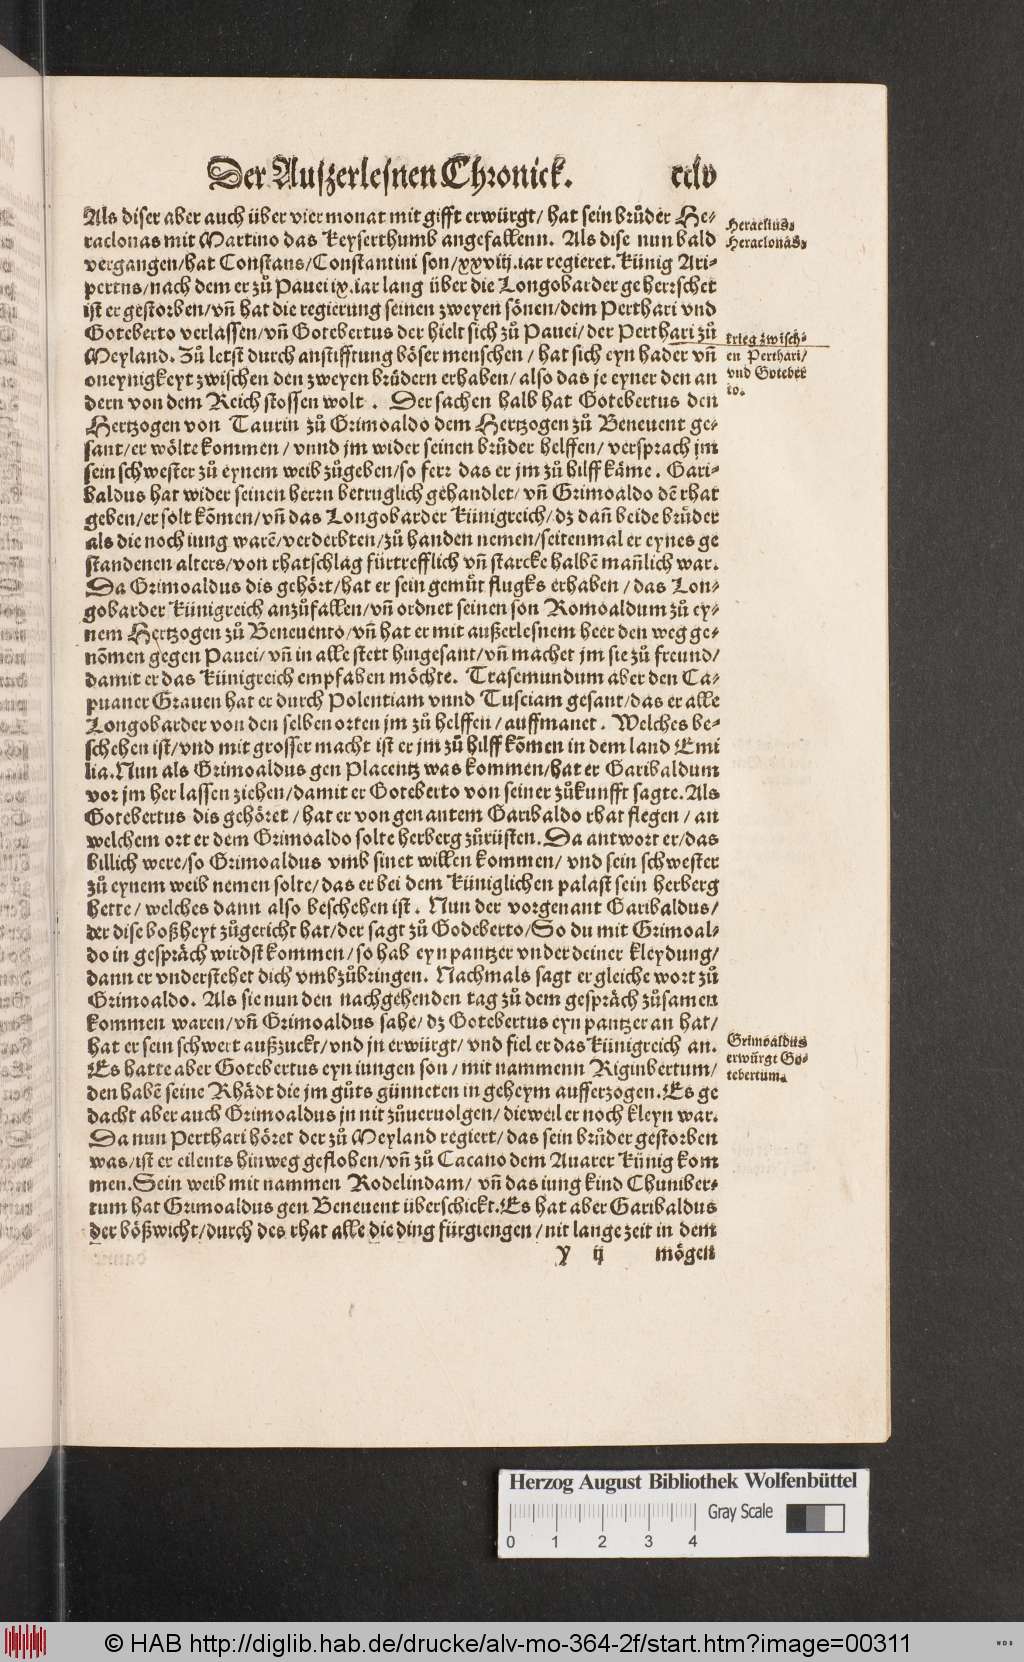 Der Auszerlesnen Chronick. cclv
Als diser aber auch über vier monat mit gifft erwürgt/ hat sein brůder He-
raclonas mit Martino das Keyserthumb angefallenn. Als dise nun bald
vergangen/hat Constans/Constantini son/xxviij.iar regieret. Künig Ari-
pertus/nach dem er zů Pauei ix.iar lang über die Longobarder geherrschet
ist er gestorben/vñ hat die regierung seinen zweyen sönen/dem Perthari vnd
Goteberto verlassen/vñ Gotebertus der hielt sich zů Pauei/der Perthari zů
Meyland. Zů letst durch anstifftung böser menschen/ hat sich eyn hader vñ
oneynigkeyt zwischen den zweyen brůdern erhaben/ also das je eyner den an
dern von dem Reich stossen wolt. Der sachen halb hat Gotebertus den
Hertzogen von Taurin zů Grimoaldo dem Hertzogen zů Beneuent ge-
sant/er wölte kommen/ vnnd jm wider seinen brůder helffen/ versprach jm
sein schwester zů eynem weib zůgeben/so ferr das er jm zů hilff käme. Gari-
baldus hat wider seinen herrn betruglich gehandlet/ vñ Grimoaldo dē rhat
geben/er solt kōmen/vñ das Longobarder Künigreich/dz dañ beide brůder
als die noch iung warē/verderbten/zů handen nemen/seitenmal er eynes ge
standenen alters/von rhatschlag fürtrefflich vñ starcke halbē mañlich war.
Da Grimoaldus dis gehört/hat er sein gemůt flugks erhaben/ das Lon-
gobarder Künigreich anzůfallen/vñ ordnet seinen son Romoaldum zů ey-
nem Hertzogen zů Beneuento/vñ hat er mit außerlesnem heer den weg ge-
nōmen gegen Pauei/vñ in alle stett hingesant/vñ machet jm sie zů freund/
damit er das Künigreich empfahen möchte. Trasemundum aber den Ca-
puaner Grauen hat er durch Polentiam vnnd Tusciam gesant/das er alle
Longobarder von den selben orten jm zů helffen/ auffmanet. Welches be-
schehen ist/vnd mit grosser macht ist er jm zů hilff kōmen in dem land Emi
lia. Nun als Grimoaldus gen Placentz was kommen/hat er Garibaldum
vor jm her lassen ziehen/damit er Goteberto von seiner zůkunfft sagte. Als
Gotebertus dis gehöret/ hat er von genantem Garibaldo rhat flegen/ an
welchem ort er dem Grimoaldo solte herberg zůrüsten. Da antwort er/das
billich were/so Grimoaldus vmb sinet willen kommen/ vnd sein schwester
zů eynem weib nemen solte/das er bei dem Küniglichen palast sein herberg
hette/ welches dann also beschehen ist. Nun der vorgenant Garibaldus/
der dise boßheyt zůgericht hat/der sagt zů Godeberto/So du mit Grimoal-
do in gespräch wirdst kommen/so hab eyn pantzer vnder deiner kleydung/
dann er vnderstehet dich vmbzůbringen. Nachmals sagt er gleiche wort zů
Grimoaldo. Als sie nun den nachgehenden tag zů dem gespräch zůsamen
kommen waren/vñ Grimoaldus sahe/dz Gotebertus eyn pantzer an hat/
hat er sein schwert außzuckt/vnd jn erwürgt/ vnd fiel er das Künigreich an.
Es hatte aber Gotebertus eyn iungen son/ mit nammenn Riginbertum/
den habē seine Rhädt die jm gůts günneten in geheym aufferzogen. Es ge
dacht aber auch Grimoaldus jn nit zůueruolgen/ dieweil er noch kleyn war.
Da nun Perthari höret der zů Meyland regiert/ das sein brůder gestorben
was/ist er eilents hinweg geflohen/vñ zů Cacano dem Auarer Künig kom
men. Sein weib mit nammen Rodelindam/ vñ das iung kind Chuniber-
tum hat Grimoaldus gen Beneuent überschickt. Es hat aber Garibaldus
der bößwicht/durch des rhat alle die ding fürgiengen/ nit lange zeit in dem
Y ij mögen
Heraclius.
Heraclonas.
krieg zwisch-
en Perthari/
vnd Goteber
to.
Grimoaldus
erwürgt Go-
tebertum.
Herzog August Bibliothek Wolfenbüttel
0 1 2 3 4
Gray Scale
© HAB http://diglib.hab.de/drucke/alv-mo-364-2f/start.htm?image=00311
WDB